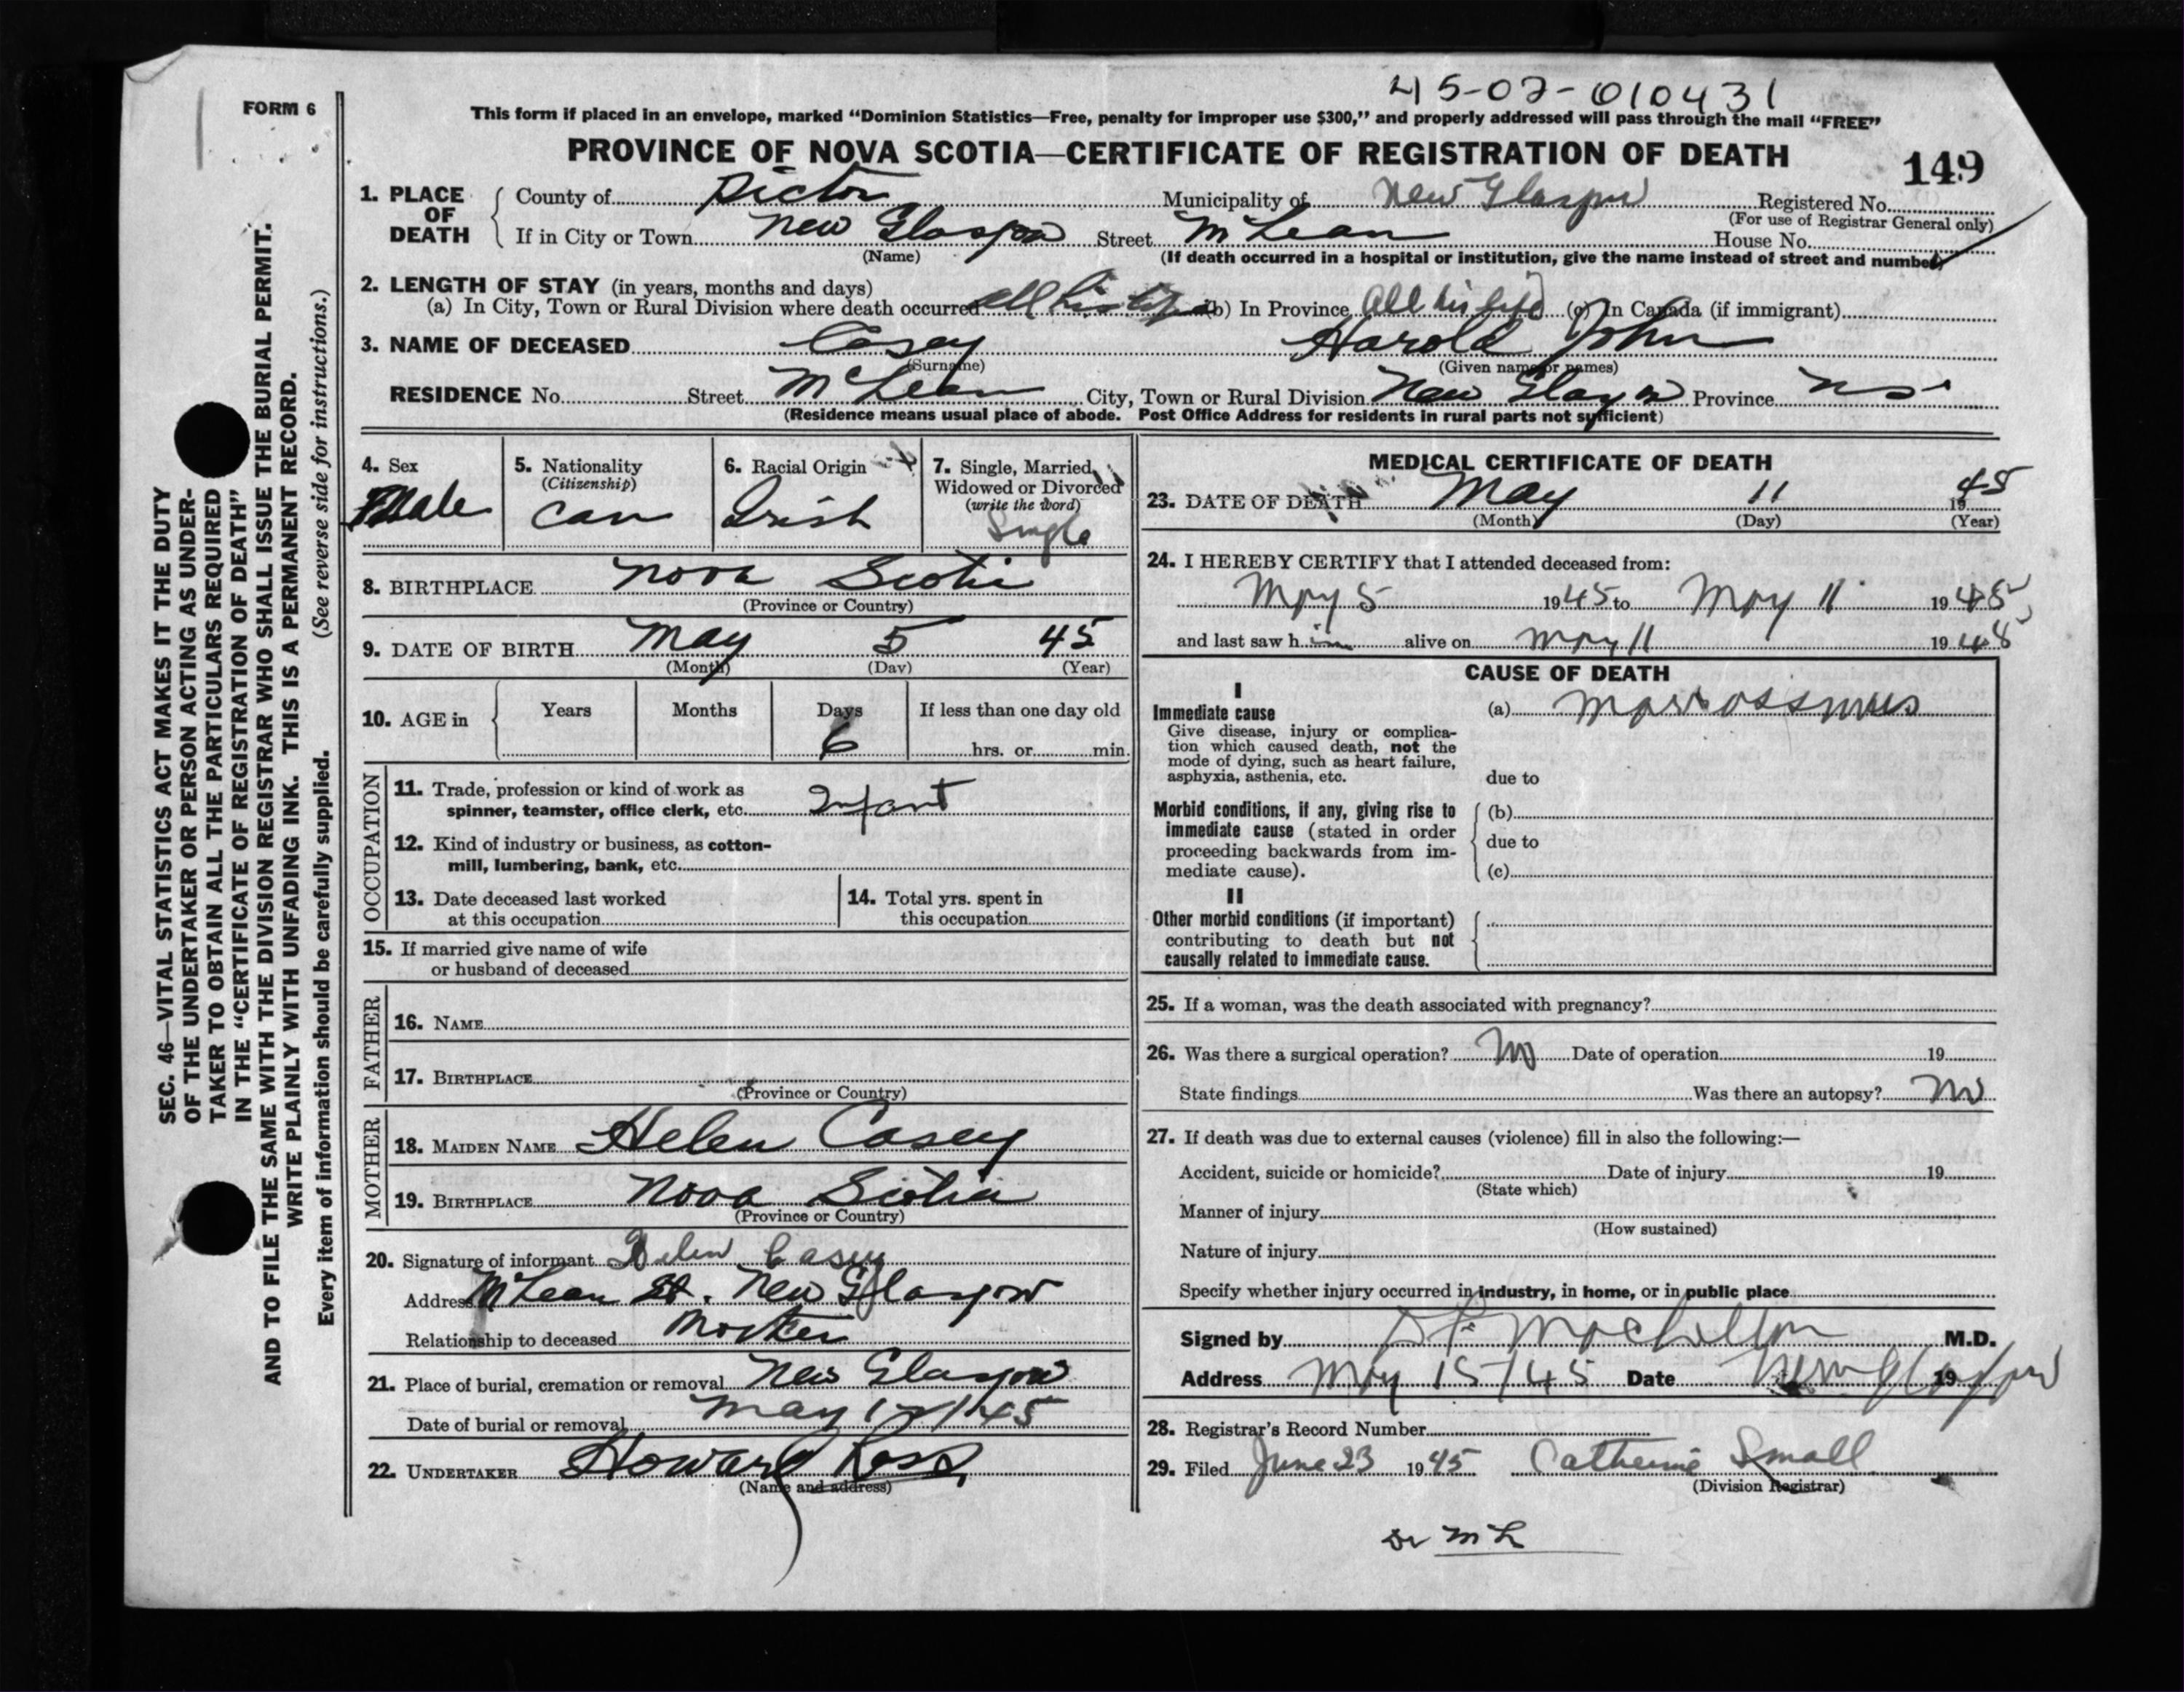 45-02-010431
FORM 6
This form if placed in an envelope, marked "Dominion Statistics—Free, penalty for improper use $300," and properly addressed will pass through the mail "FREE"
PROVINCE OF NOVA SCOTIA—CERTIFICATE OF REGISTRATION OF DEATH
149
1. PLACE OF DEATH
County of Pictou Municipality of New Glasgow Registered No.
(For use of Registrar General only)
If in City or Town New Glasgow Street McLean House No.
(Name) (If death occurred in a hospital or institution, give the name instead of street and number)
2. LENGTH OF STAY (in years, months and days)
(a) In City, Town or Rural Division where death occurred all his life (b) In Province All his life (c) In Canada (if immigrant)
3. NAME OF DECEASED Casey Harold John
(Surname) (Given name or names)
RESIDENCE No. Street McLean City, Town or Rural Division New Glasgow Province NS
(Residence means usual place of abode. Post Office Address for residents in rural parts not sufficient)
4. Sex
Male
5. Nationality
(Citizenship)
Can
6. Racial Origin
Irish
7. Single, Married,
Widowed or Divorced
(write the word)
Single
8. BIRTHPLACE Nova Scotia
(Province or Country)
9. DATE OF BIRTH May 5 45
(Month) (Day) (Year)
10. AGE in Years Months Days If less than one day old
6 hrs. or min.
OCCUPATION
11. Trade, profession or kind of work as
spinner, teamster, office clerk, etc. Infant
12. Kind of industry or business, as cotton-
mill, lumbering, bank, etc.
13. Date deceased last worked
at this occupation
14. Total yrs. spent in
this occupation
15. If married give name of wife
or husband of deceased
FATHER
16. NAME
17. BIRTHPLACE
(Province or Country)
MOTHER
18. MAIDEN NAME Helen Casey
19. BIRTHPLACE Nova Scotia
(Province or Country)
20. Signature of informant Helen Casey
Address McLean St. New Glasgow
Relationship to deceased Mother
21. Place of burial, cremation or removal New Glasgow
Date of burial or removal May 12/45
22. UNDERTAKER Howard Ross
(Name and address)
MEDICAL CERTIFICATE OF DEATH
23. DATE OF DEATH May 11 1945
(Month) (Day) (Year)
24. I HEREBY CERTIFY that I attended deceased from:
May 5 1945 to May 11 1945
and last saw him alive on May 11 1945
CAUSE OF DEATH
I
Immediate cause
Give disease, injury or complica-
tion which caused death, not the
mode of dying, such as heart failure,
asphyxia, asthenia, etc.
(a)
due to
Morbid conditions, if any, giving rise to
immediate cause (stated in order
proceeding backwards from im-
mediate cause).
(b)
due to
(c)
II
Other morbid conditions (if important)
contributing to death but not
causally related to immediate cause.
25. If a woman, was the death associated with pregnancy?
26. Was there a surgical operation? No Date of operation 19
State findings Was there an autopsy? No
27. If death was due to external causes (violence) fill in also the following:—
Accident, suicide or homicide? Date of injury 19
(State which)
Manner of injury
(How sustained)
Nature of injury
Specify whether injury occurred in industry, in home, or in public place
Signed by M.D.
Address May 15/45 Date New Glasgow 19
28. Registrar's Record Number
29. Filed June 23 1945 Catherine Small
(Division Registrar)
Dr ML
SEC. 46—VITAL STATISTICS ACT MAKES IT THE DUTY
OF THE UNDERTAKER OR PERSON ACTING AS UNDER-
TAKER TO OBTAIN ALL THE PARTICULARS REQUIRED
IN THE "CERTIFICATE OF REGISTRATION OF DEATH"
AND TO FILE THE SAME WITH THE DIVISION REGISTRAR WHO SHALL ISSUE THE BURIAL PERMIT.
WRITE PLAINLY WITH UNFADING INK. THIS IS A PERMANENT RECORD.
Every item of information should be carefully supplied. (See reverse side for instructions.)